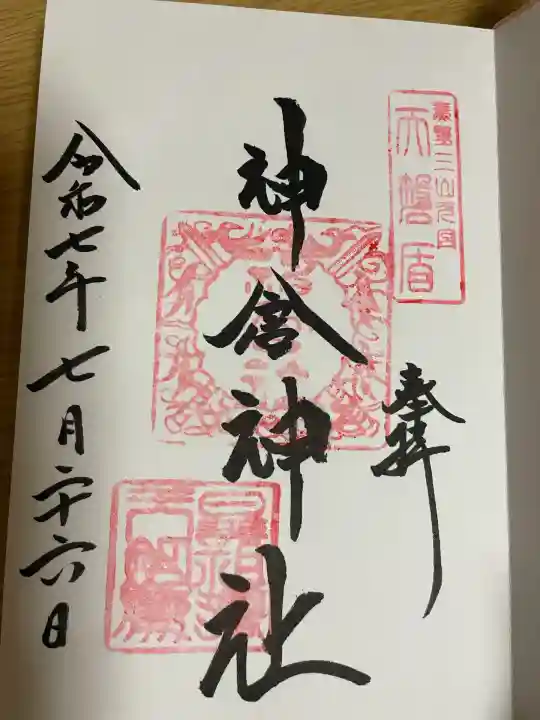 熊野三山
天磐盾
奉拝
神倉神社
令和七年七月二十六日